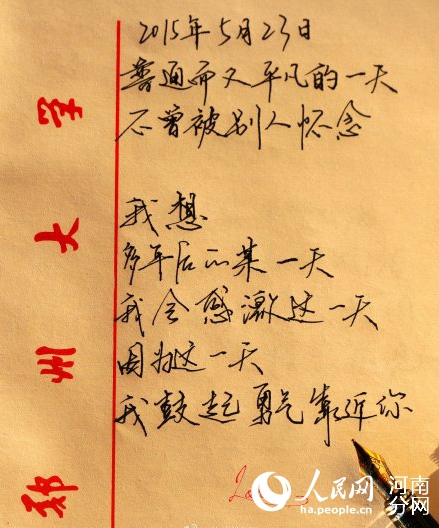 2015年5月23日
普通而又平凡的一天
不曾被别人怀念
我想
多年后的某一天
我会感激这一天
因为这一天
我鼓起勇气靠近你
郑州大学
人民网
河南分网
ha.people.cn